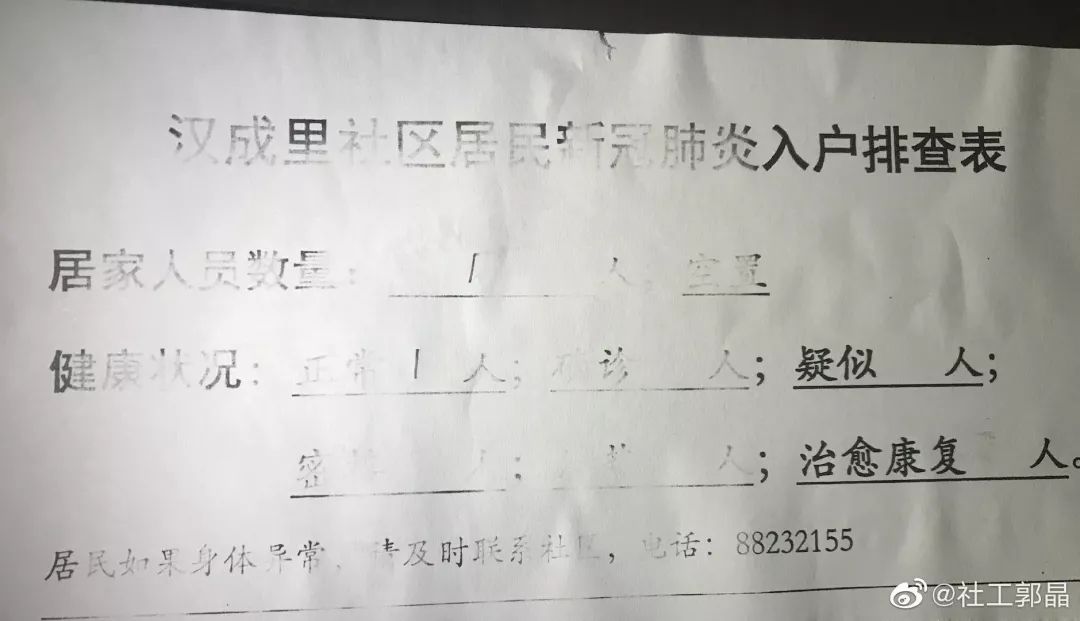 汉成里社区居民新冠肺炎入户排查表
居家人员数量： 1 人；空置
健康状况：正常 1 人；确诊 人；疑似 人；
密 人； 人；治愈康复 人。
居民如果身体异常，请及时联系社区，电话：88232155
@社工郭晶